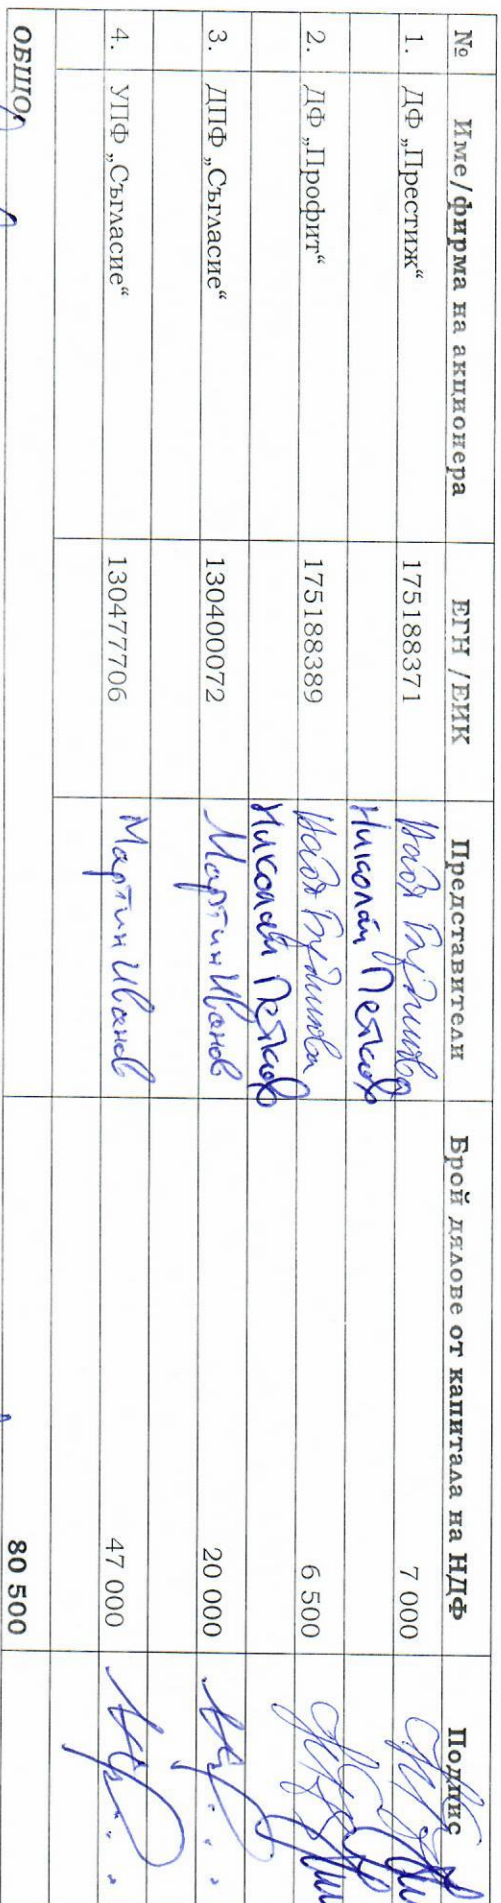 № Име/фирма на акционера ЕГН /ЕИК Представители Брой дялове от капитала на НДФ Подпис
1. ДФ „Престиж“ 175188371 7 000
Николай Петков
2. ДФ „Профит“ 175188389 6 500
Николай Петков
3. ДПФ „Съгласие“ 130400072 Мартин Иванов 20 000
4. УПФ „Съгласие“ 130477706 Мартин Иванов 47 000
ОБЩО 80 500